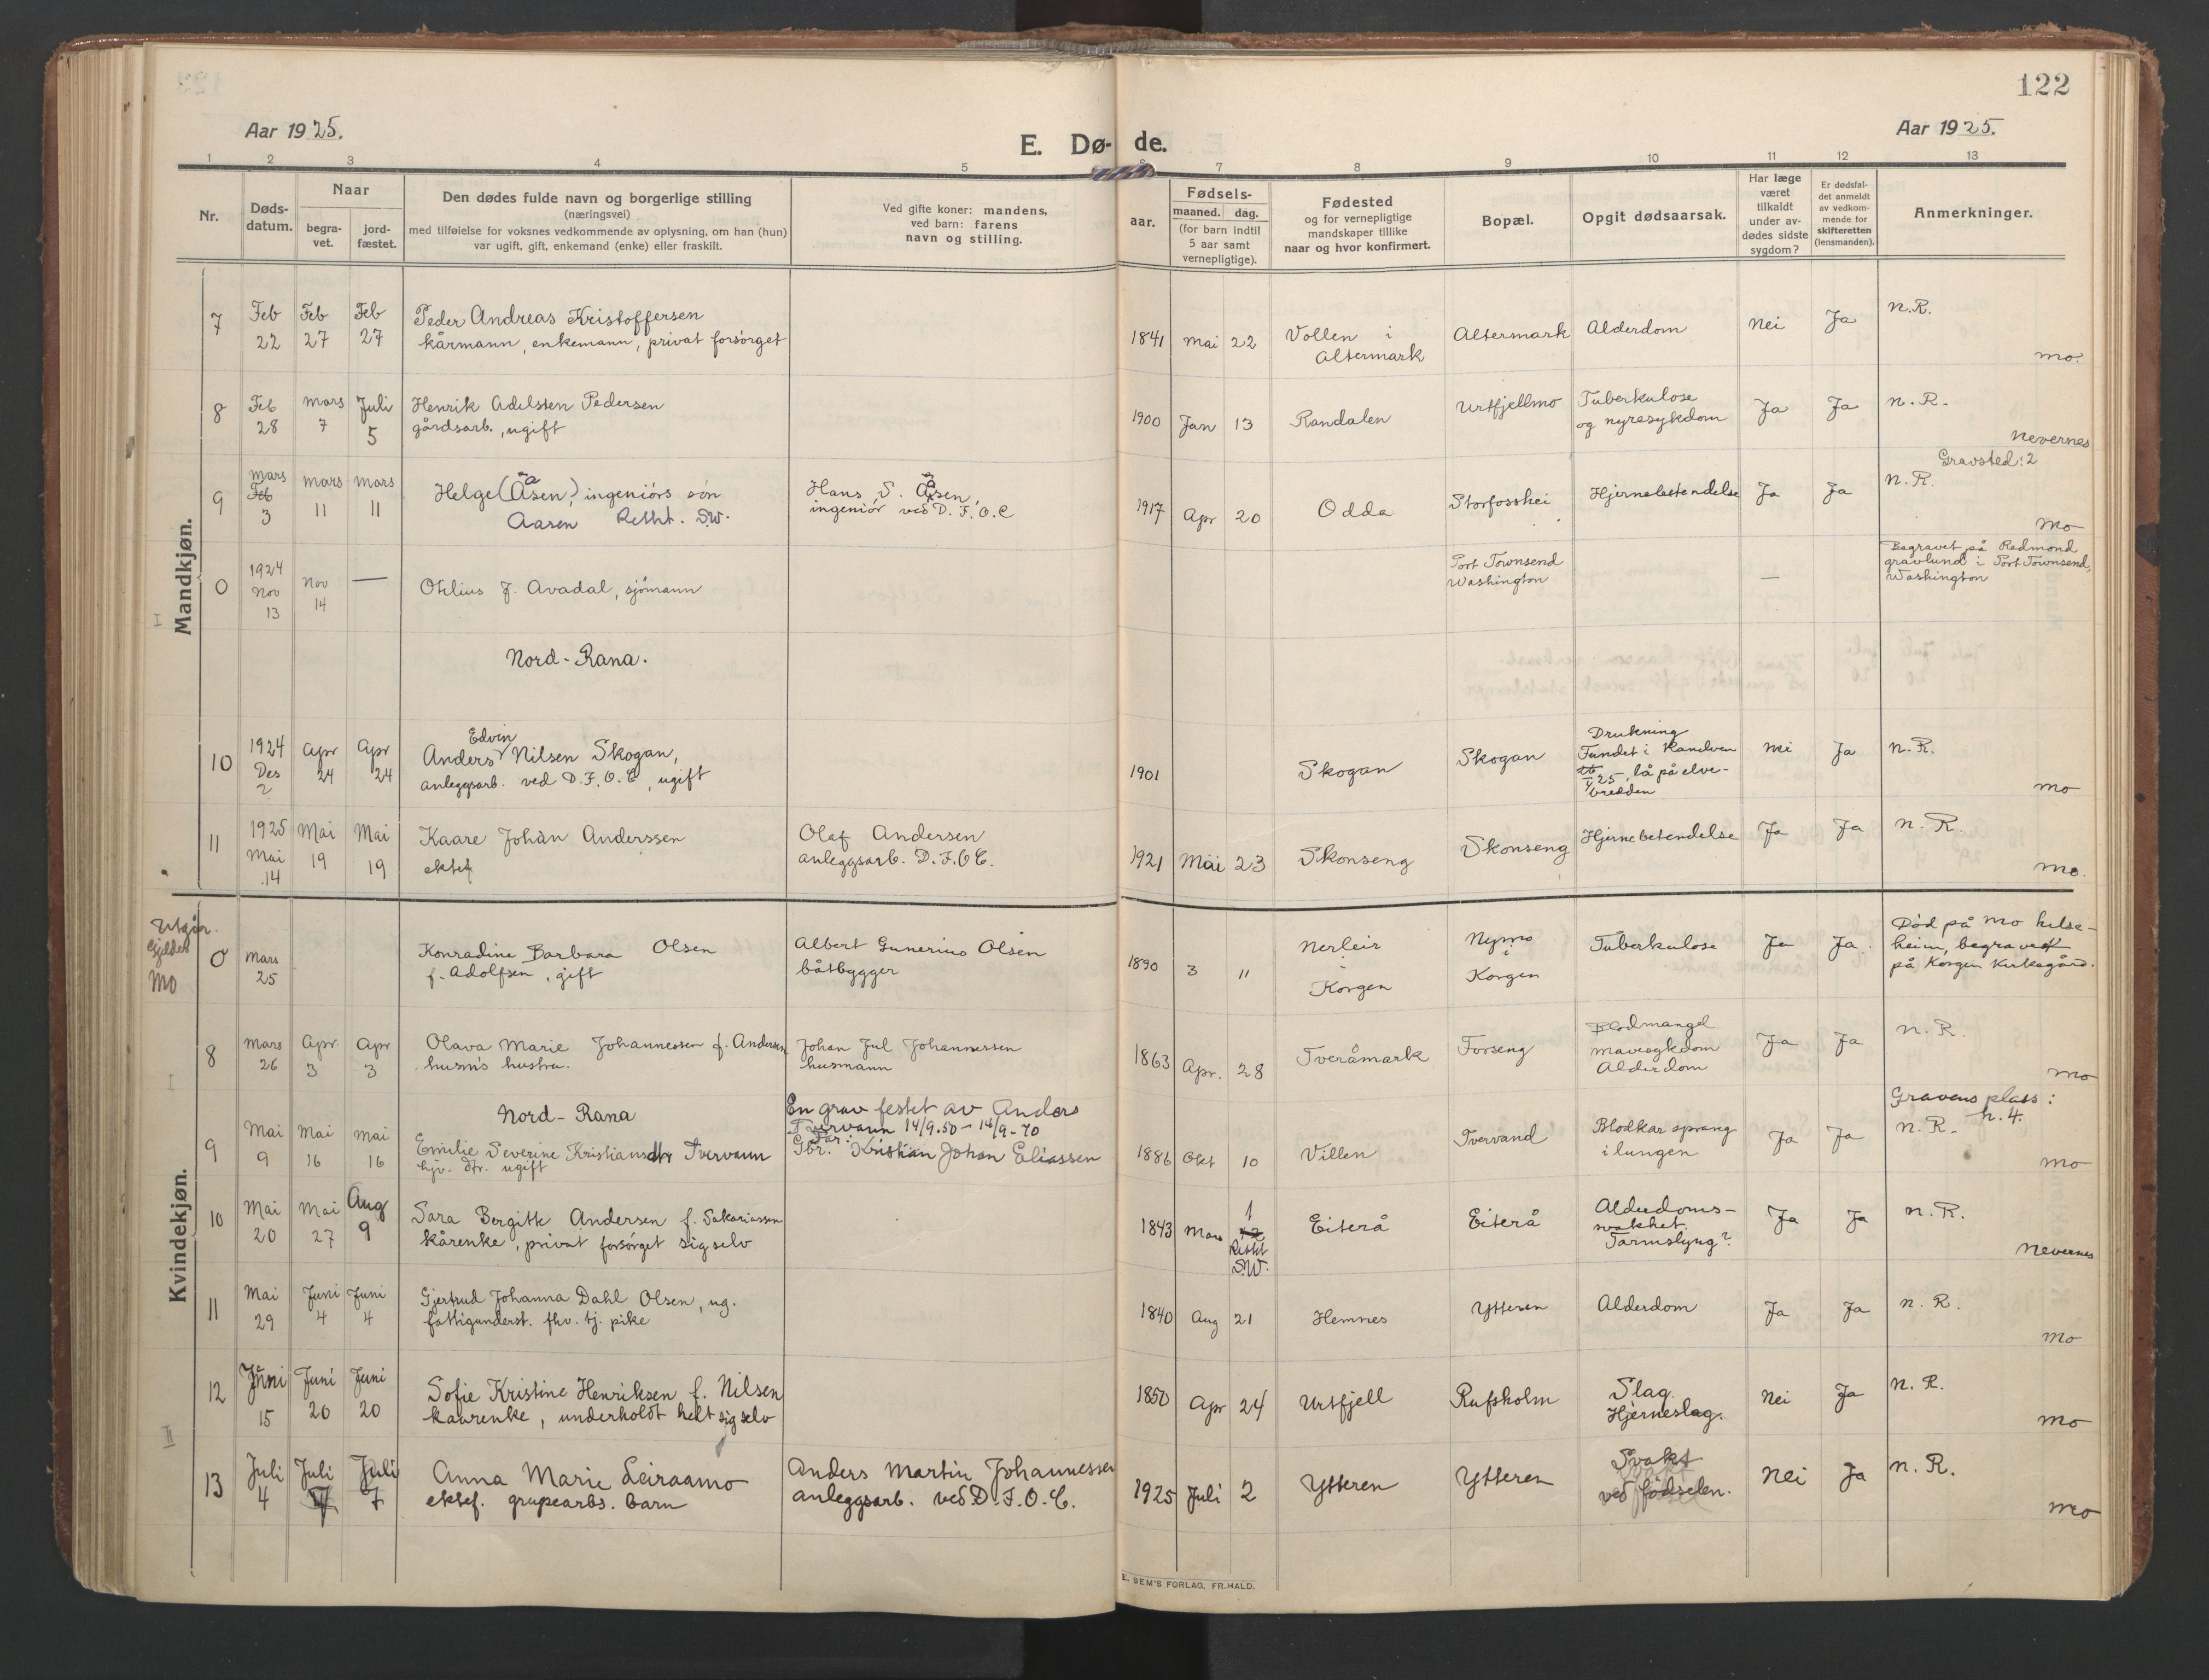 122
Aar 1925.
E. Dø- de.
Aar 1925.
1 2 3 4 5 6 7 8 9 10 11 12 13
Nr.
Døds-
datum.
Naar
begra-
vet.
jord-
fæstet.
Den dødes fulde navn og borgerlige stilling
(næringsvei)
med tilføielse for voksnes vedkommende av oplysning, om han (hun)
var ugift, gift, enkemand (enke) eller fraskilt.
Ved gifte koner: mandens,
ved barn: farens
navn og stilling.
Fødsels-
aar.
maaned. dag.
(for barn indtil
5 aar samt
vernepligtige).
Fødested
og for vernepligtige
mandskaper tillike
naar og hvor konfirmert.
Bopæl.
Opgit dødsaarsak.
Har læge
været
tilkaldt
under av-
dødes sidste
sygdom?
Er dødsfal-
det anmeldt
av vedkom-
mende for
skifteretten
(lensmanden).
Anmerkninger.
Mandkjøn.
7
Feb
22
Feb
27
Feb
27
Peder Andreas Kristoffersen
kårmann, enkemann, privat forsørget
1841 Mai 22
Vollen i
Altermark
Altermark
Alderdom
Nei
Ja
N.R.
Mo.
8
Feb
28
Mars
7
Juli
5
Henrik Adelsten Pedersen
gårdsarb., ugift
1900 Jan 13
Randalen
Urtfjellmo
Tuberkulose
og nyresykdom
Ja
Ja
N.R.
Nevernes
9
Mars
Feb
3
Mars
11
Mars
11
Helge (Åsen), ingeniørs søn
Aasen Rettet. S.W.
Hans S. Åsen,
ingeniør ved D.F.O.C
1917 Apr 20
Odda
Storfosshei
Hjernebetendelse
Ja
Ja
Gravsted: 2
N.R.
Mo
0
1924
Nov
13
Nov
14
—
Otelius J. Avadal, sjømann
Port Townsend
Washington
—
Begravet på Redmond
gravlund i Port Townsend,
Washington
I
Nord-Rana.
10
1924
Des
2
Apr
24
Apr
24
Edvin
Anders Nilsen Skogan,
anleggsarb. ved D.F.O.C, ugift
1901
Skogan
Skogan
Drukning
Fundet i Ranelven
25, lå på elve-
bredden
Nei
Ja
N.R.
Mo
11
1925
Mai
14
Mai
19
Mai
19
Kaare Johan Anderssen
ektef
Olaf Andersen
anleggsarb. D.F.O.C.
1921 Mai 23
Skonseng
Skonseng
Hjernebetendelse
Ja
Ja
N.R.
Mo.
Kvindekjøn.
Utgår.
Gjelder
Mo
0
Mars
25
Konradine Barbara Olsen
f. Adolfsen, gift
Albert Gunerius Olsen
båtbygger
1890 3 11
Nerleir
i
Korgen
Nymo
i
Korgen
Tuberkulose
Ja
Ja.
Død på Mo helse-
heim, begravet
på Korgen kirkegård.
8
Mars
26
Apr
3
Apr
3
Olava Marie Johannessen f. Andersen
husm's hustru.
Johan Jul Johannessen
husmann
1863 Apr. 28
Tveråmark
Forseng
Blodmangel
Mavesykdom
Alderdom
Ja
Ja
N.R.
Mo
I
Nord-Rana
9
Mai
9
Mai
16
Mai
16
Emilie Severine Kristiansdtr Tvervann
hjv. dtr. ugift
En grav festet av Anders
Tvervann 14/9.50 - 14/9-70
Far:
Gbr. Kristian Johan Eliassen
1886 Okt 10
Villen
Tvervand
Blodkar sprang
i lungen
Ja
Ja
Gravens plass:
n. 4.
N.R.
Mo
10
Mai
20
Mai
27
Aug
9
Sara Bergitte Andersen f. Sakariassen
kårenke, privat forsørget sig selv
1843 Mars 1
12
Rettet
S.W.
Eiterå
Eiterå
Alderdoms-
svakhet.
Tarmslyng?
Ja
Ja
N.R.
Nevernes
11
Mai
29
Juni
4
Juni
4
Gjertrud Johanna Dahl Olsen, ug.
fattigunderst. fhv. tj. pike
1840 Aug 21
Hemnes
Ytteren
Alderdom
Ja
Ja
N.R.
Mo
12
Juni
15
Juni
20
Juni
20
Sofie Kristine Henriksen f. Nilsen
kaarenke, underholdt helt sig selv
1850 Apr 24
Urtfjell
Rufsholm
Slag.
Hjerneslag.
Nei
Ja
N.R.
Mo
II
13
Juli
4
Juli
7
Juli
7
Anna Marie Leiraamo
ektef. grupearbs. barn
Anders Martin Johannessen
anleggsarb. ved D.F.O.C.
1925 Juli 2
Ytteren
Ytteren
Svakt
ved fødselen.
Nei
Ja
N.R.
Mo
E. SEM'S FORLAG, FR.HALD.